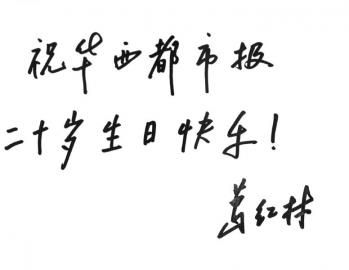 祝华西都市报
二十岁生日快乐!
葛红林